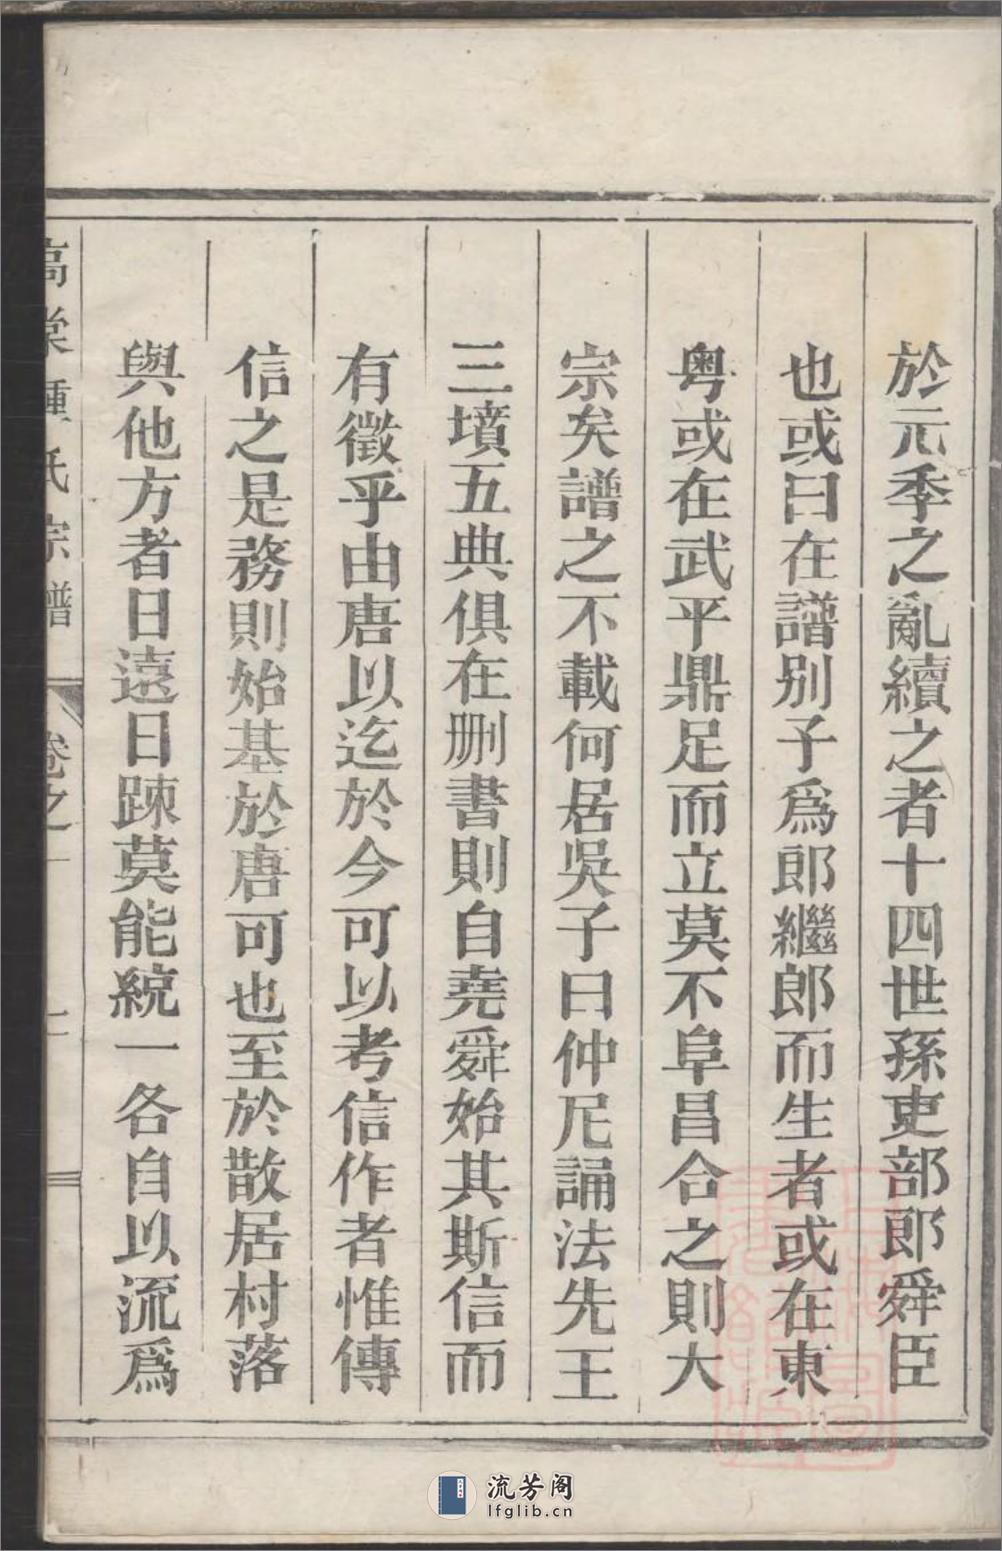 於元季之亂續之者十四世孫吏部郎舜臣
也或曰在譜別子為郎繼郎而生者或在東
粵或在武平鼎足而立莫不阜昌合之則大
宗矣譜之不載何居吳子曰仲尼誦法先王
三墳五典俱在刪書則自堯舜始其斯信而
有徵乎由唐以迄於今可以考信作者惟傳
信之是務則始基於唐可也至於散居村落
與他方者日遠日踈莫能統一各自以流為
高棠鍾氏宗譜
卷之一
流芳阁
lfglib.cn